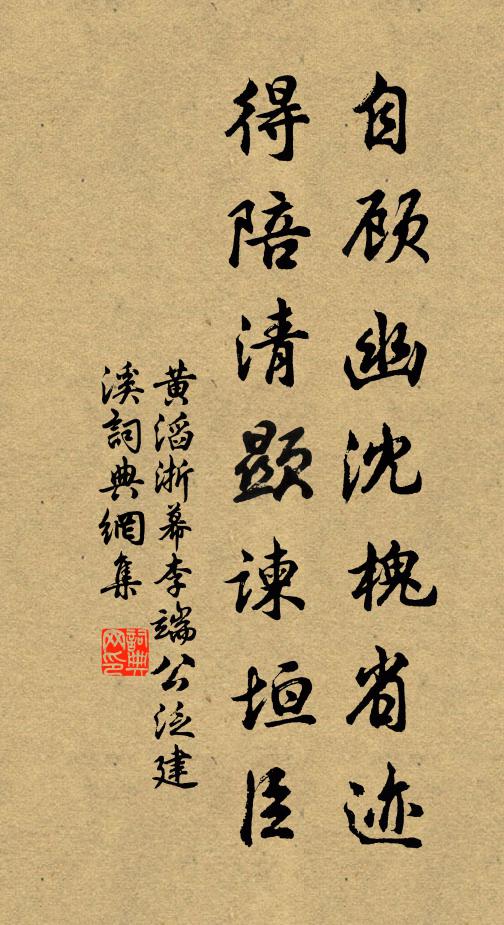 自顾幽沈槐省迹
得陪清顯谏垣臣
黄滔浙幕李端公泛建
溪詞典網集
詞典网印